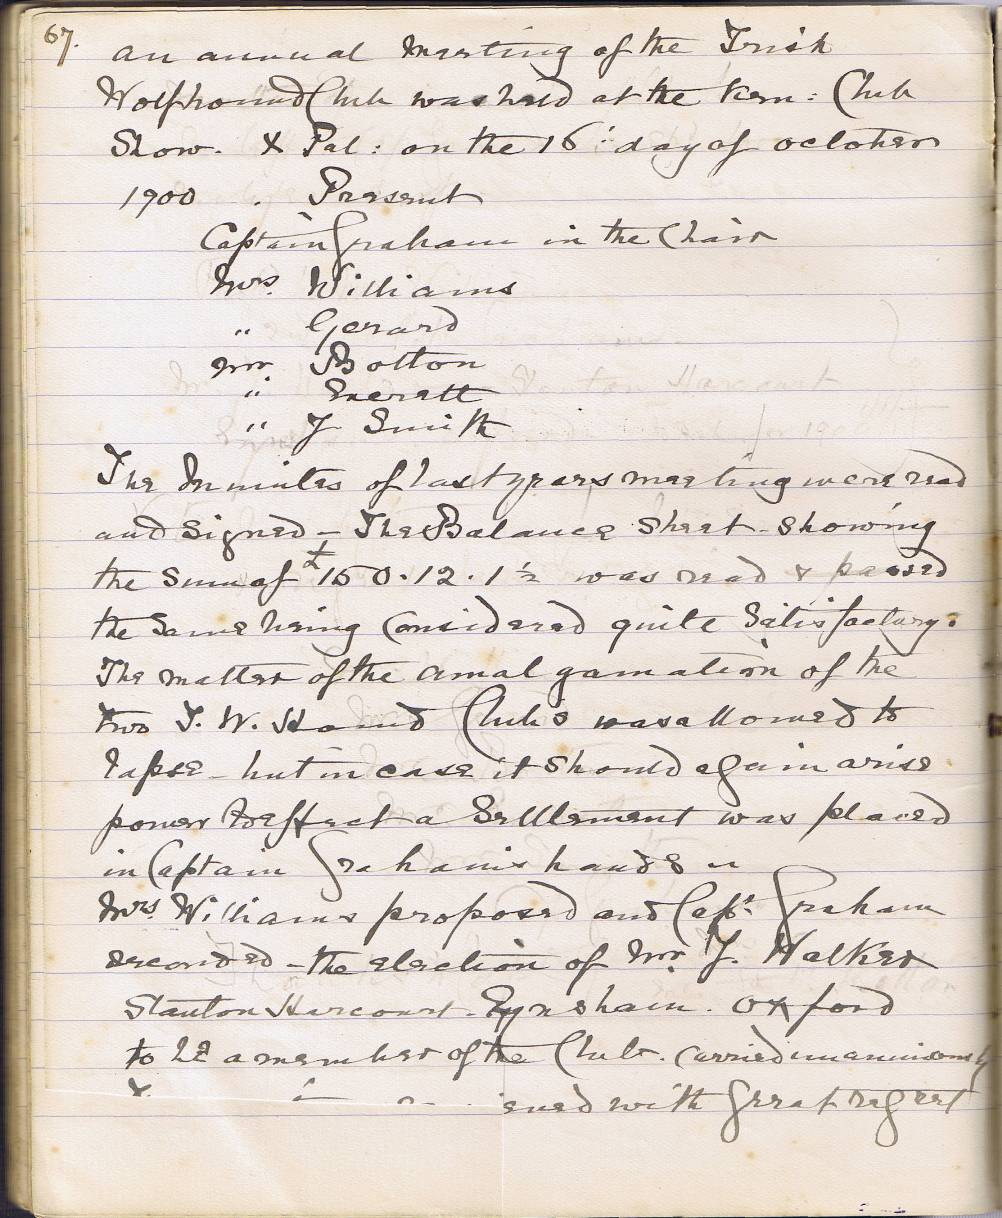 67.
An annual Meeting of the Irish
Wolfhound Club was held at the Ken: Club
Show. X Pal: on the 16th day of October
1900 . Present
Captain Graham in the Chair
Mrs. Williams
" Gerard
Mr Bolton
" Everett
" J Smith
The Minutes of last years meeting were read
and Signed - The Balance Sheet - showing
the Sum of £150.12.1½ was read & passed
the same being Considered quite Satisfactory.
The matter of the amalgamation of the
two I. W. Hound Clubs was allowed to
lapse - but in case it should again arise
power to effect a Settlement was placed
in Captain Graham's hands
Mrs Williams proposed and Capt. Graham
seconded - the election of Mr J. Walker
Stanton Harcourt - Eynsham. Oxford
to be a member of the Club. Carried unanimously
with great regret